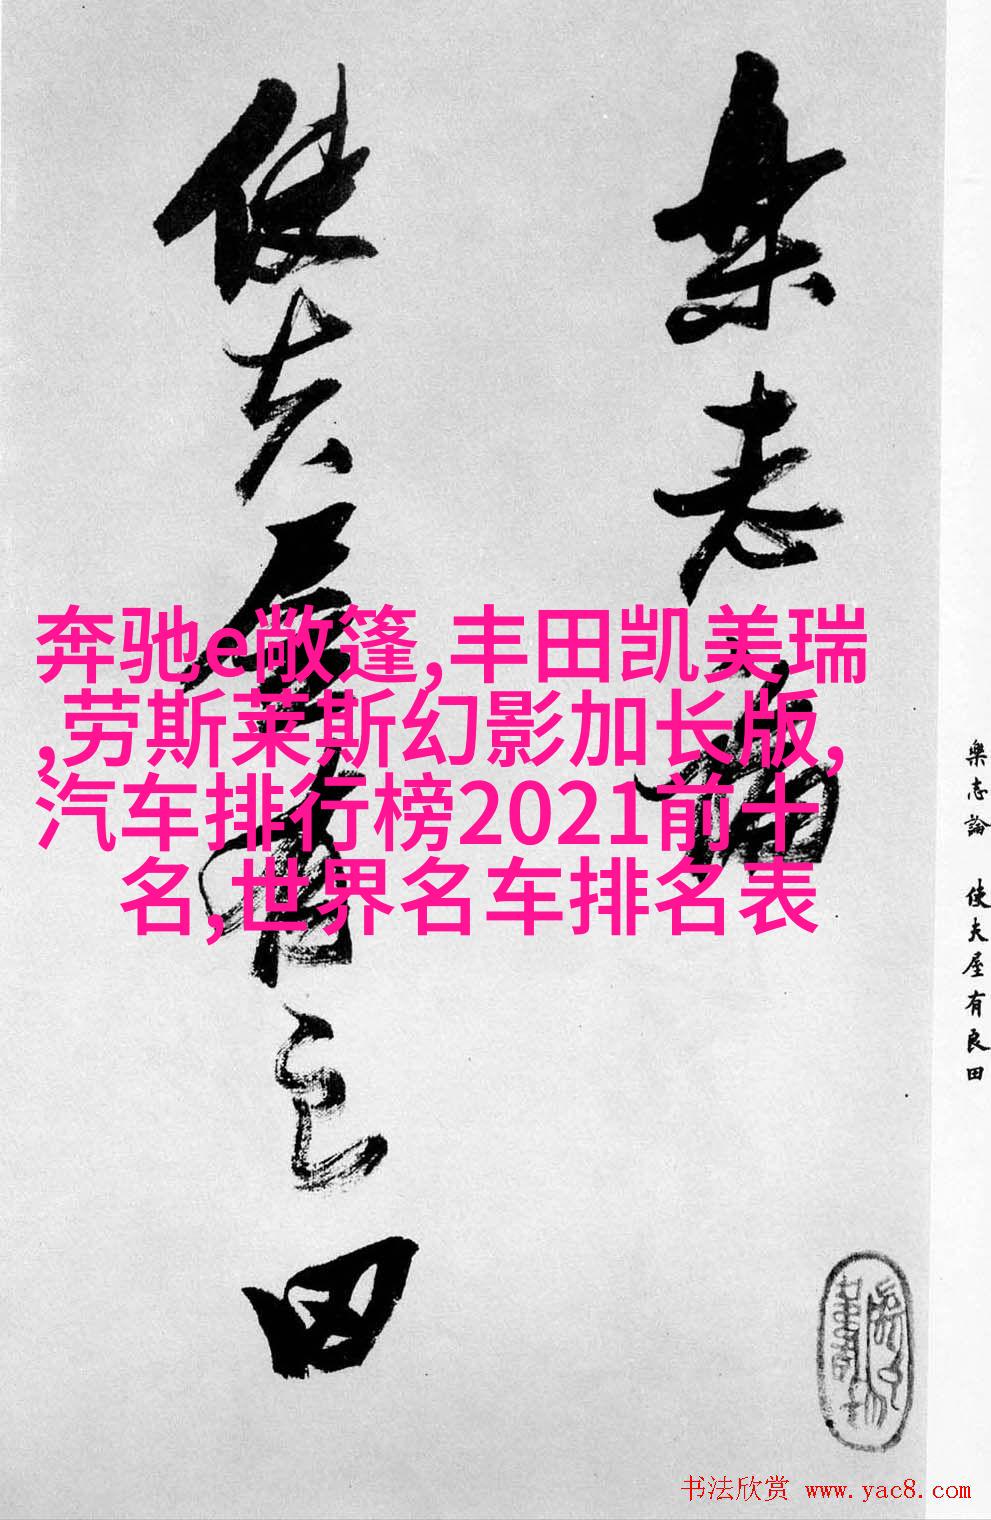 樂志論
使夫屋有良田
奔驰e敞篷,丰田凯美瑞
,劳斯莱斯幻影加长版,
汽车排行榜2021前十
名,世界名车排名表
樂志論 使夫屋有良田
书法欣赏 www.yac8.com